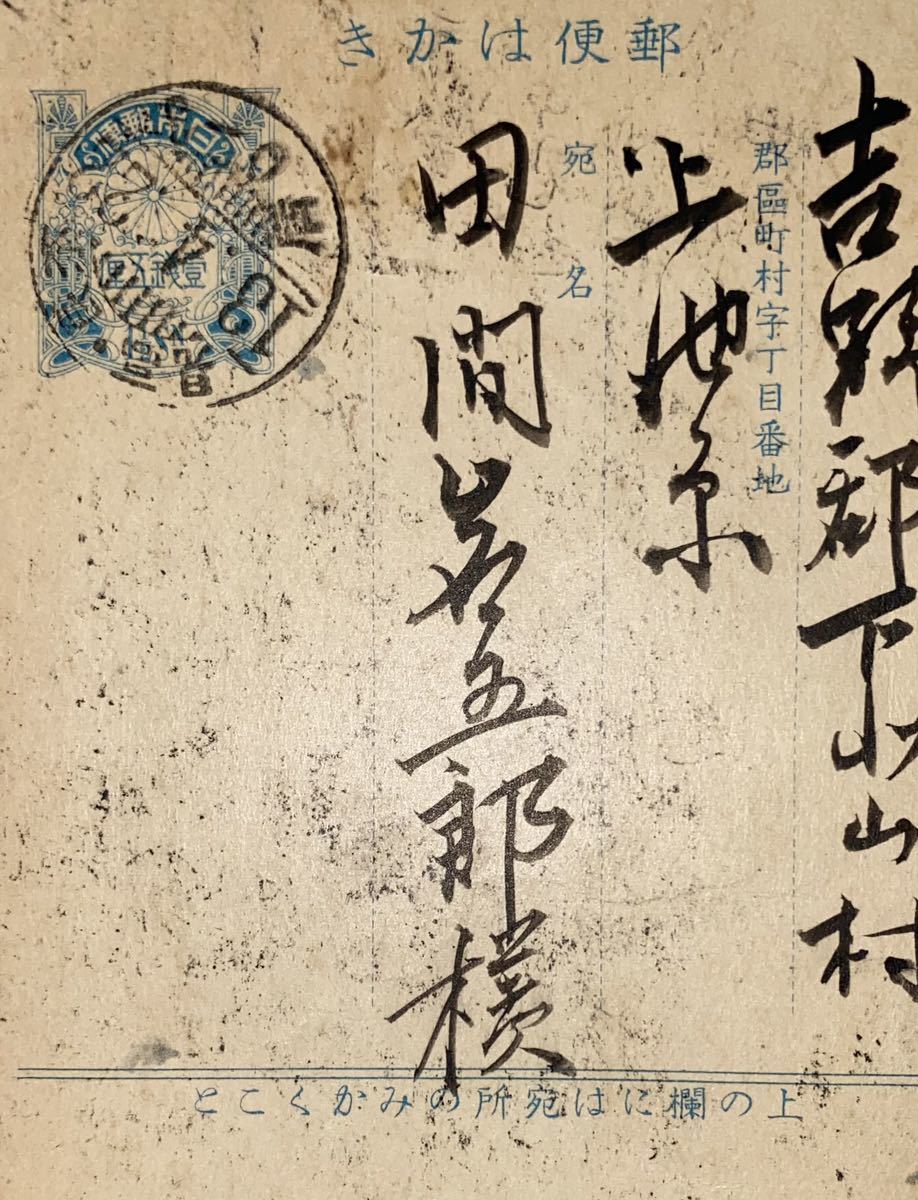 郵便はかき
吉野郡下北山村
郡區町村字丁目番地
上池原
宛名
田間岩五郎様
壹錢五厘
上の欄には宛所のみかくこと